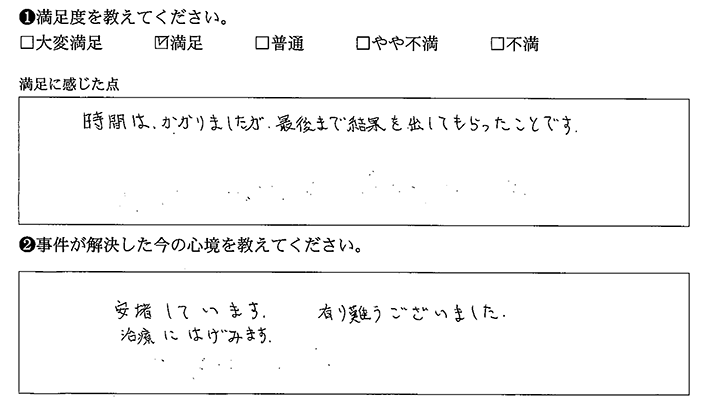 ❶満足度を教えてください。
□大変満足 ☑満足 □普通 □やや不満 □不満
満足に感じた点
時間は、かかりましたが、最後まで結果を出してもらったことです.
❷事件が解決した今の心境を教えてください。
安堵しています. 有り難うございました.
治療にはげみます.